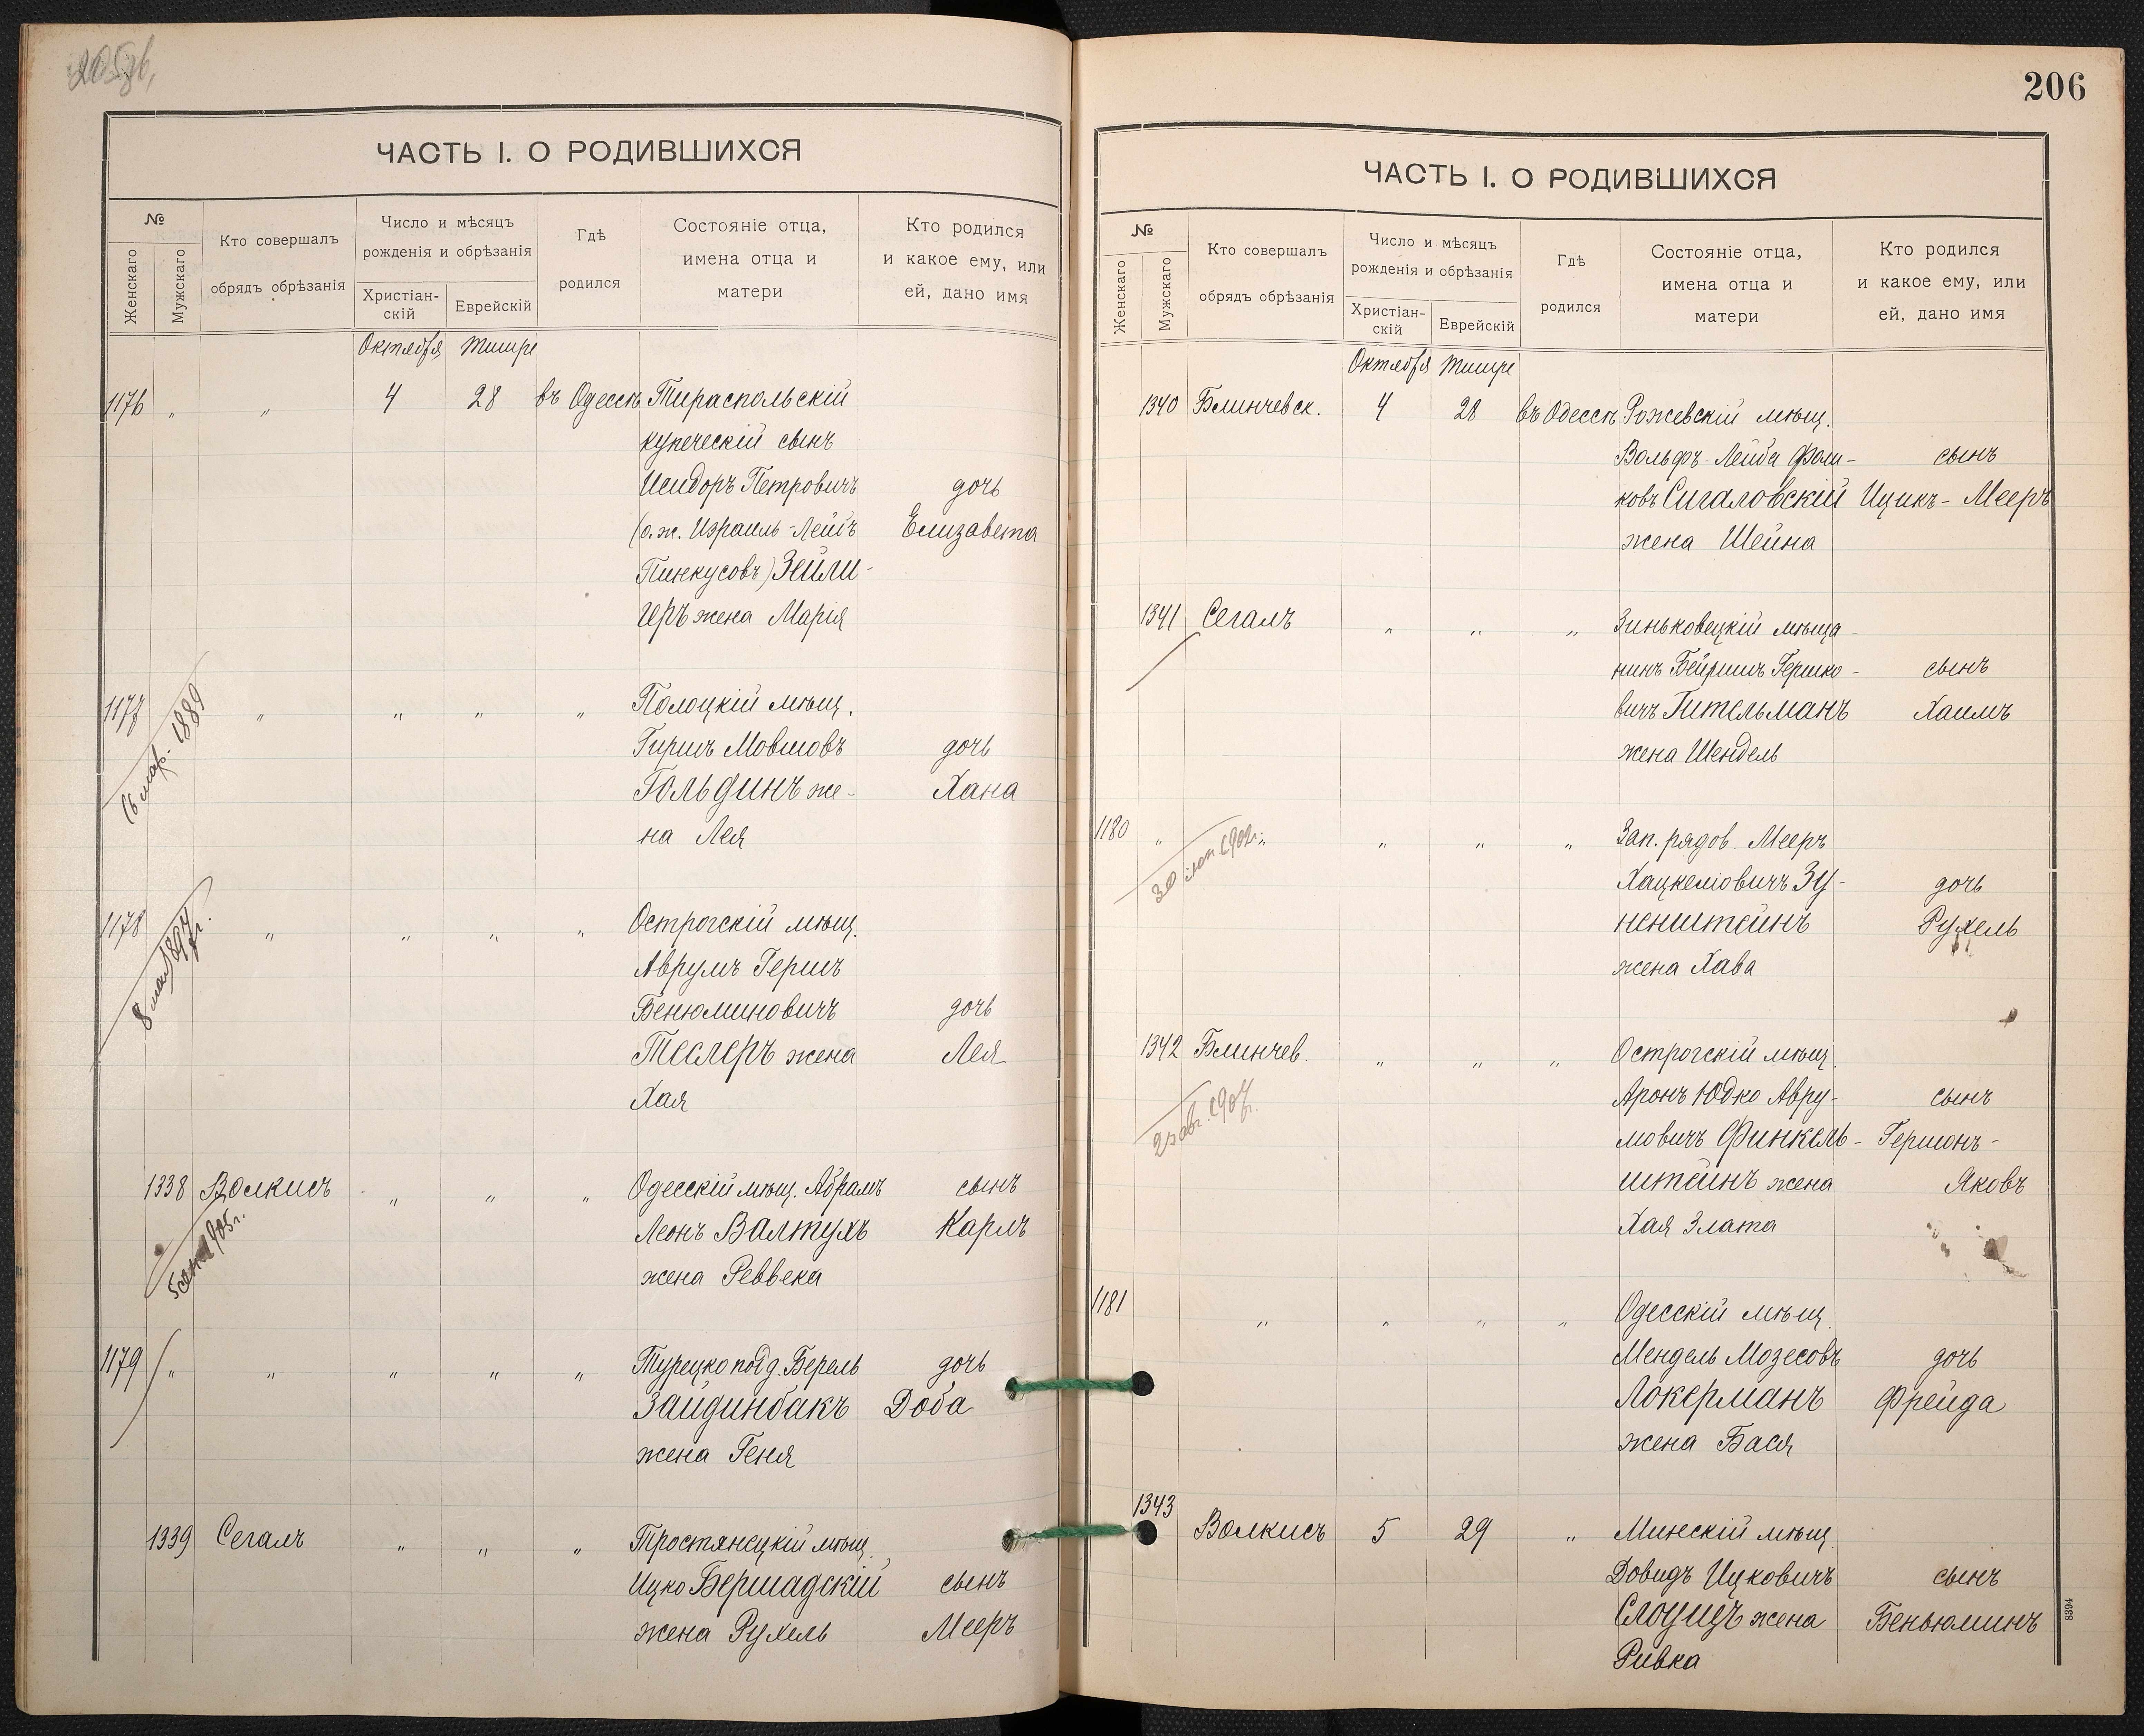 ЧАСТЬ I. О РОДИВШИХСЯ
№
Женскаго
Мужскаго
Кто совершалъ
обрядъ обрѣзанія
Число и мѣсяцъ
рожденія и обрѣзанія
Христіан-
скій
Еврейскій
Гдѣ
родился
Состояніе отца,
имена отца и
матери
Кто родился
и какое ему, или
ей, дано имя
Октября Тишре
1176 „ „ 4 28 въ Одессѣ Тираспольскій
купеческій сынъ
Исидоръ Петровичъ дочь
(о.ж. Израиль-Лейбъ Елизавета
Пинкусовъ) Зейли-
геръ жена Марія
1177 „ „ „ „ Полоцкій мѣщ.
16 мар. 1889
Гиршъ Мовшовъ дочь
Гольдинъ же- Хана
на Лея
1178 „ „ „ „ Острогскій мѣщ.
8 мая 1897 г.
Аврумъ Гершъ
Бенюминовичъ дочь
Теслеръ жена Лея
Хая
1338 Волкисъ „ „ „ Одесскій мѣщ. Абрамъ сынъ
1905 г.
Леонъ Валтухъ Карлъ
жена Реввека
1179 „ „ „ „ „ Турецко под д. Берель дочь
Зайдинбакъ Доба
жена Геня
1339 Сегалъ „ „ „ Тростянецкій мѣщ.
Ицко Бершадскій сынъ
жена Рухель Мееръ
206
ЧАСТЬ I. О РОДИВШИХСЯ
№
Женскаго
Мужскаго
Кто совершалъ
обрядъ обрѣзанія
Число и мѣсяцъ
рожденія и обрѣзанія
Христіан-
скій
Еврейскій
Гдѣ
родился
Состояніе отца,
имена отца и
матери
Кто родился
и какое ему, или
ей, дано имя
Октября Тишре
1340 Блинчевск. 4 28 въ Одессѣ Рожевскій мѣщ.
Вольфъ-Лейба Фоли- сынъ
ковъ Сигаловскій Ицикъ-Мееръ
жена Шейна
1341 Сегалъ „ „ „ Зиньковецкій мѣща-
нинъ Бейришъ Гершко- сынъ
вичъ Гительманъ Хаимъ
жена Шендель
1180 „ „ „ „ „ Зап. рядов. Мееръ
30 1902 г.
Хацкелювичъ Зу- дочь
ненштейнъ Рухель
жена Хава
1342 Блинчев. „ „ „ Острогскій мѣщ.
авг. 1907 г.
Аронъ Юдко Авру- сынъ
мовичъ Финкель- Гершонъ-
штейнъ жена Яковъ
Хая Злата
1181 „ „ „ „ Одесскій мѣщ.
Мендель Мозесовъ дочь
Локерманъ Фрейда
жена Бася
1343 Волкисъ 5 29 „ Минскій мѣщ.
Довидъ Ицковичъ сынъ
Слоущъ жена Беньюминъ
Ривка
8394